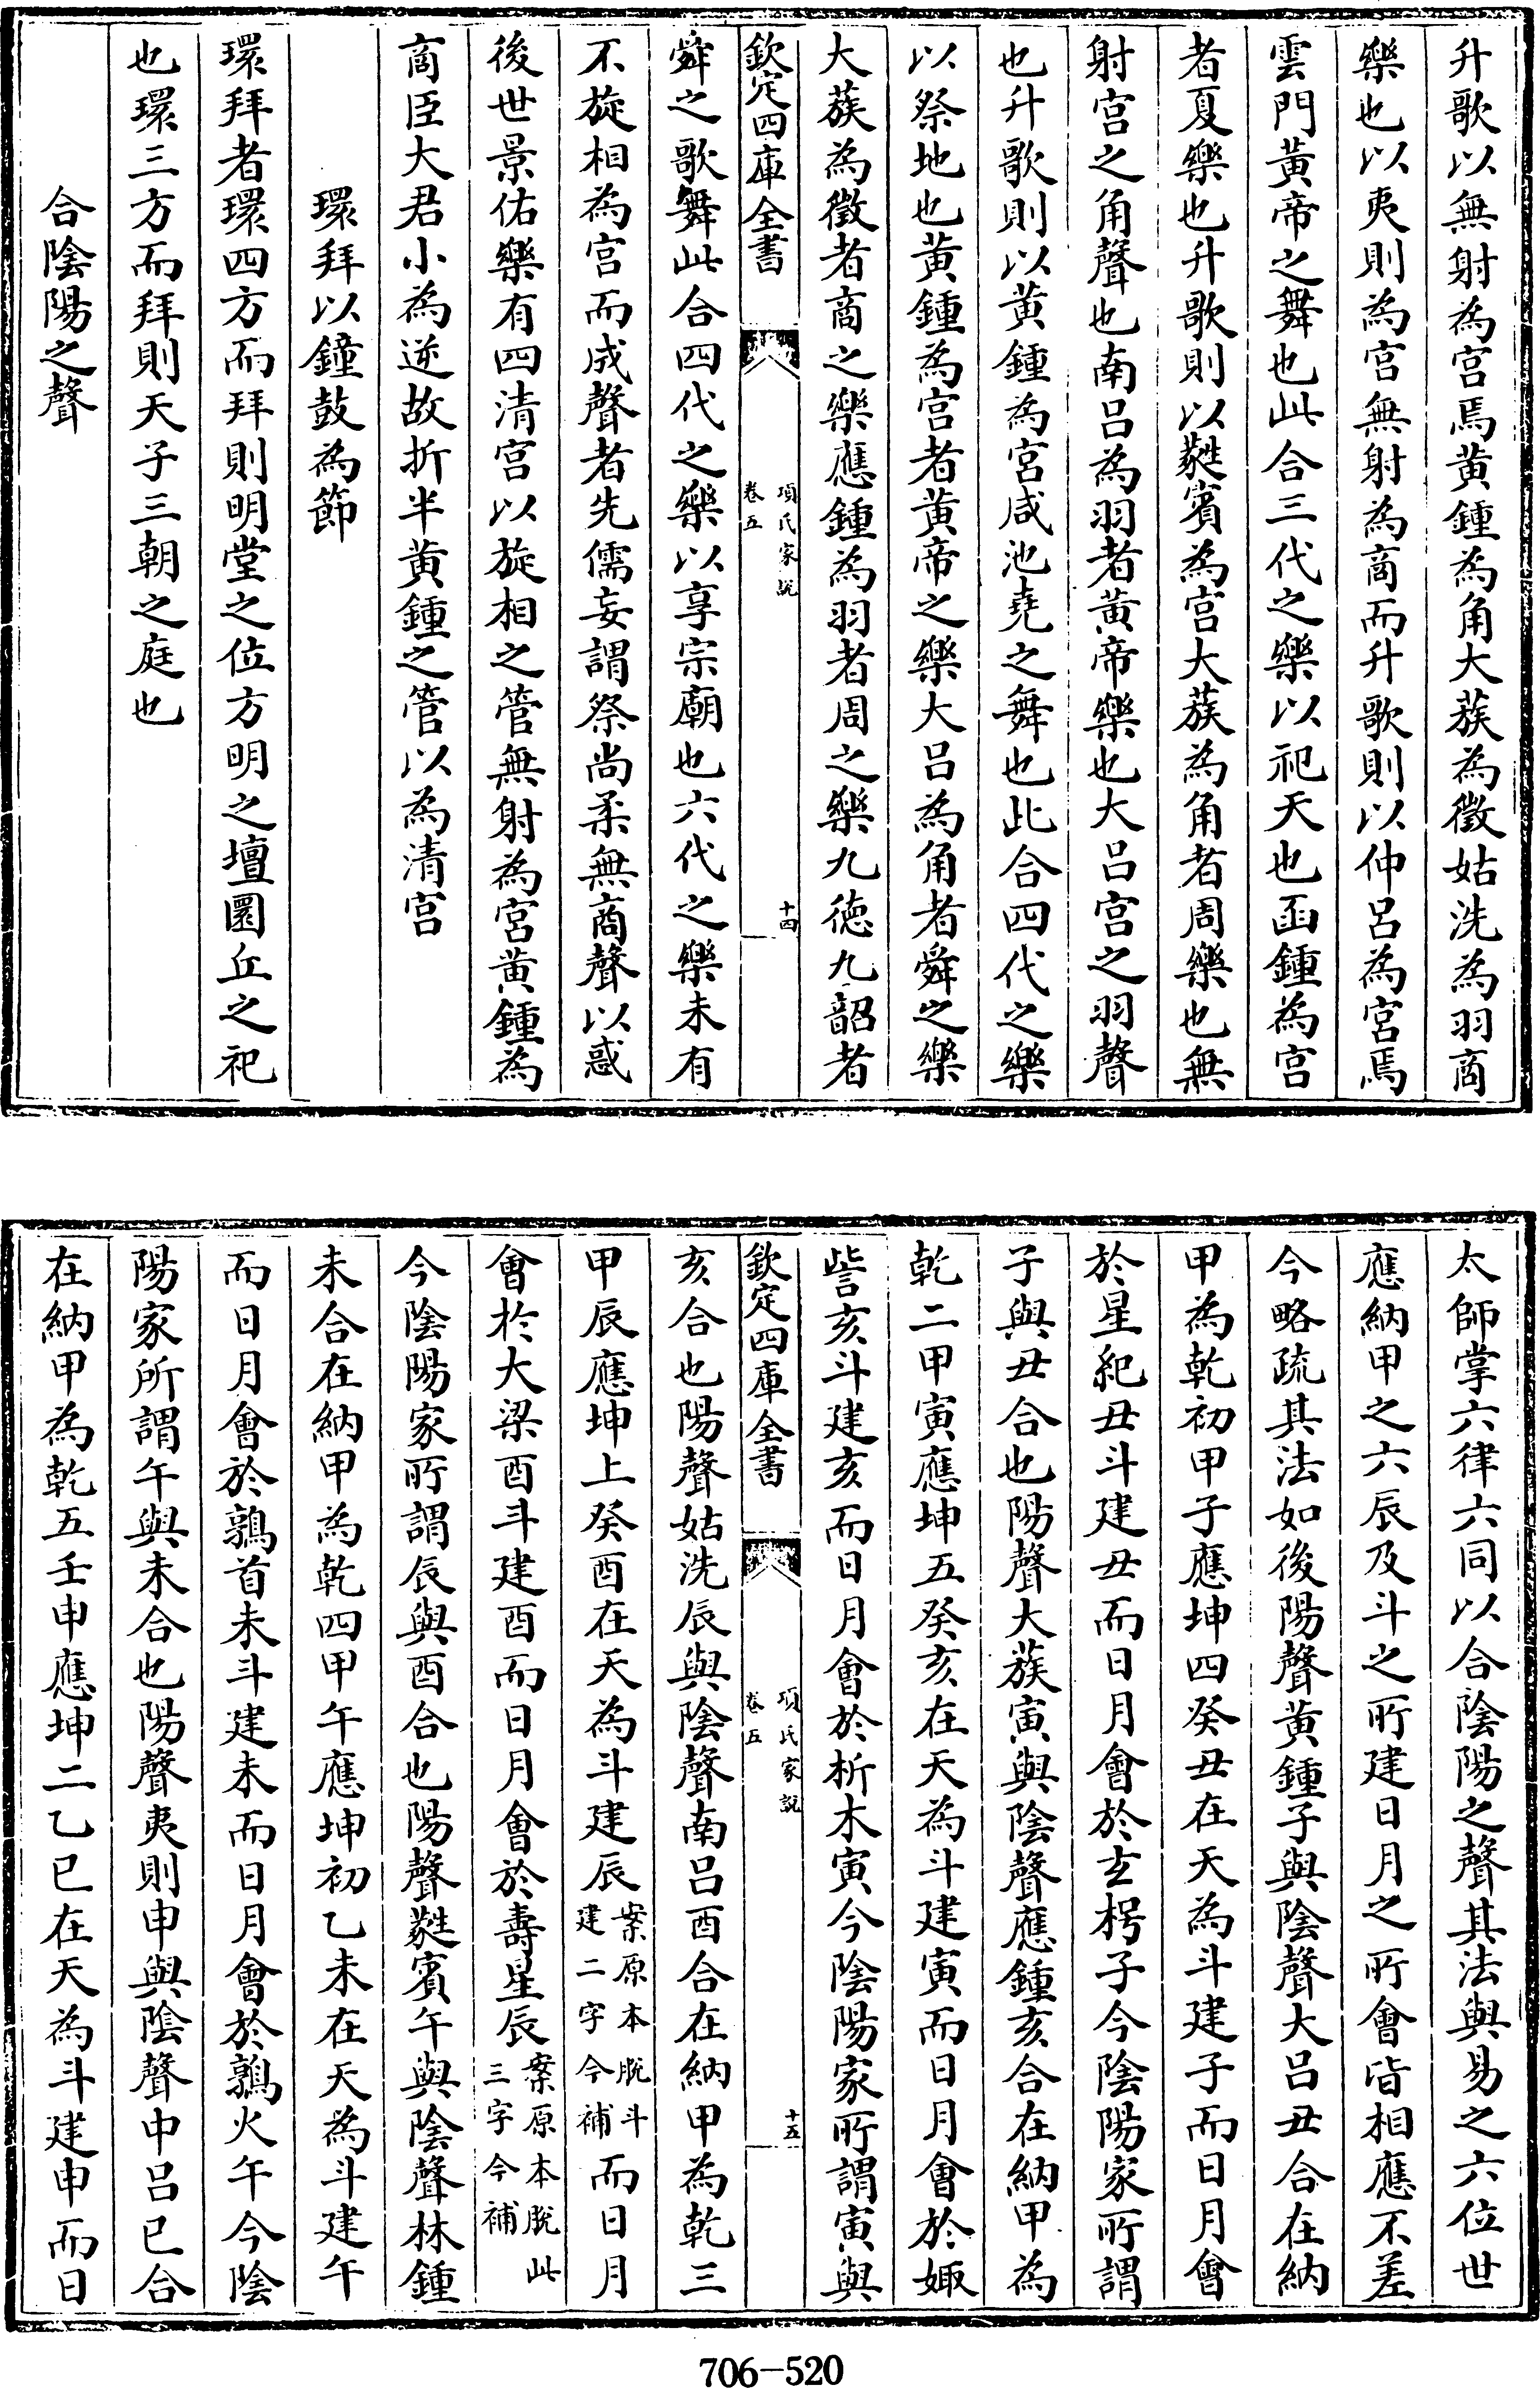 升歌以無射為宫焉黄鍾為角大蔟為徵姑洗為羽商
樂也以夷則為宫無射為商而升歌則以仲吕為宫焉
雲門黄帝之舞也此合三代之樂以祀天也函鍾為宫
者夏樂也升歌則以蕤賓為宫大蔟為角者周樂也無
射宫之角聲也南吕為羽者黄帝樂也大吕宫之羽聲
也升歌則以黄鍾為宫咸池堯之舞也此合四代之樂
以祭地也黄鍾為宫者黄帝之樂大吕為角者舜之樂
大蔟為徵者商之樂應鍾為羽者周之樂九德九韶者
欽定四庫全書
項氏家説
卷五
十四
舜之歌舞此合四代之樂以享宗廟也六代之樂未有
不旋相為宫而成聲者先儒妄謂祭尚柔無商聲以惑
後世景佑樂有四清宫以旋相之管無射為宫黄鍾為
商臣大君小為逆故折半黄鍾之管以為清宫
環拜以鐘鼓為節
環拜者環四方而拜則明堂之位方明之壇圜丘之祀
也環三方而拜則天子三朝之庭也
合陰陽之聲
太師掌六律六同以合陰陽之聲其法與易之六位世
應納甲之六辰及斗之所建日月之所會皆相應不差
今略疏其法如後陽聲黄鍾子與陰聲大吕丑合在納
甲為乾初甲子應坤四癸丑在天為斗建子而日月會
於星紀丑斗建丑而日月會於玄枵子今陰陽家所謂
子與丑合也陽聲大蔟寅與陰聲應鍾亥合在納甲為
乾二甲寅應坤五癸亥在天為斗建寅而日月會於娵
訾亥斗建亥而日月會於析木寅今陰陽家所謂寅與
欽定四庫全書
項氏家説
卷五
十五
亥合也陽聲姑洗辰與陰聲南吕酉合在納甲為乾三
甲辰應坤上癸酉在天為斗建辰案原本脱斗建二字今補而日月
會於大梁酉斗建酉而日月會於壽星辰案原本脱此三字今補
今陰陽家所謂辰與酉合也陽聲蕤賓午與陰聲林鍾
未合在納甲為乾四甲午應坤初乙未在天為斗建午
而日月會於鶉首未斗建未而日月會於鶉火午今陰
陽家所謂午與未合也陽聲夷則申與陰聲中吕巳合
在納甲為乾五壬申應坤二乙巳在天為斗建申而日
706-520